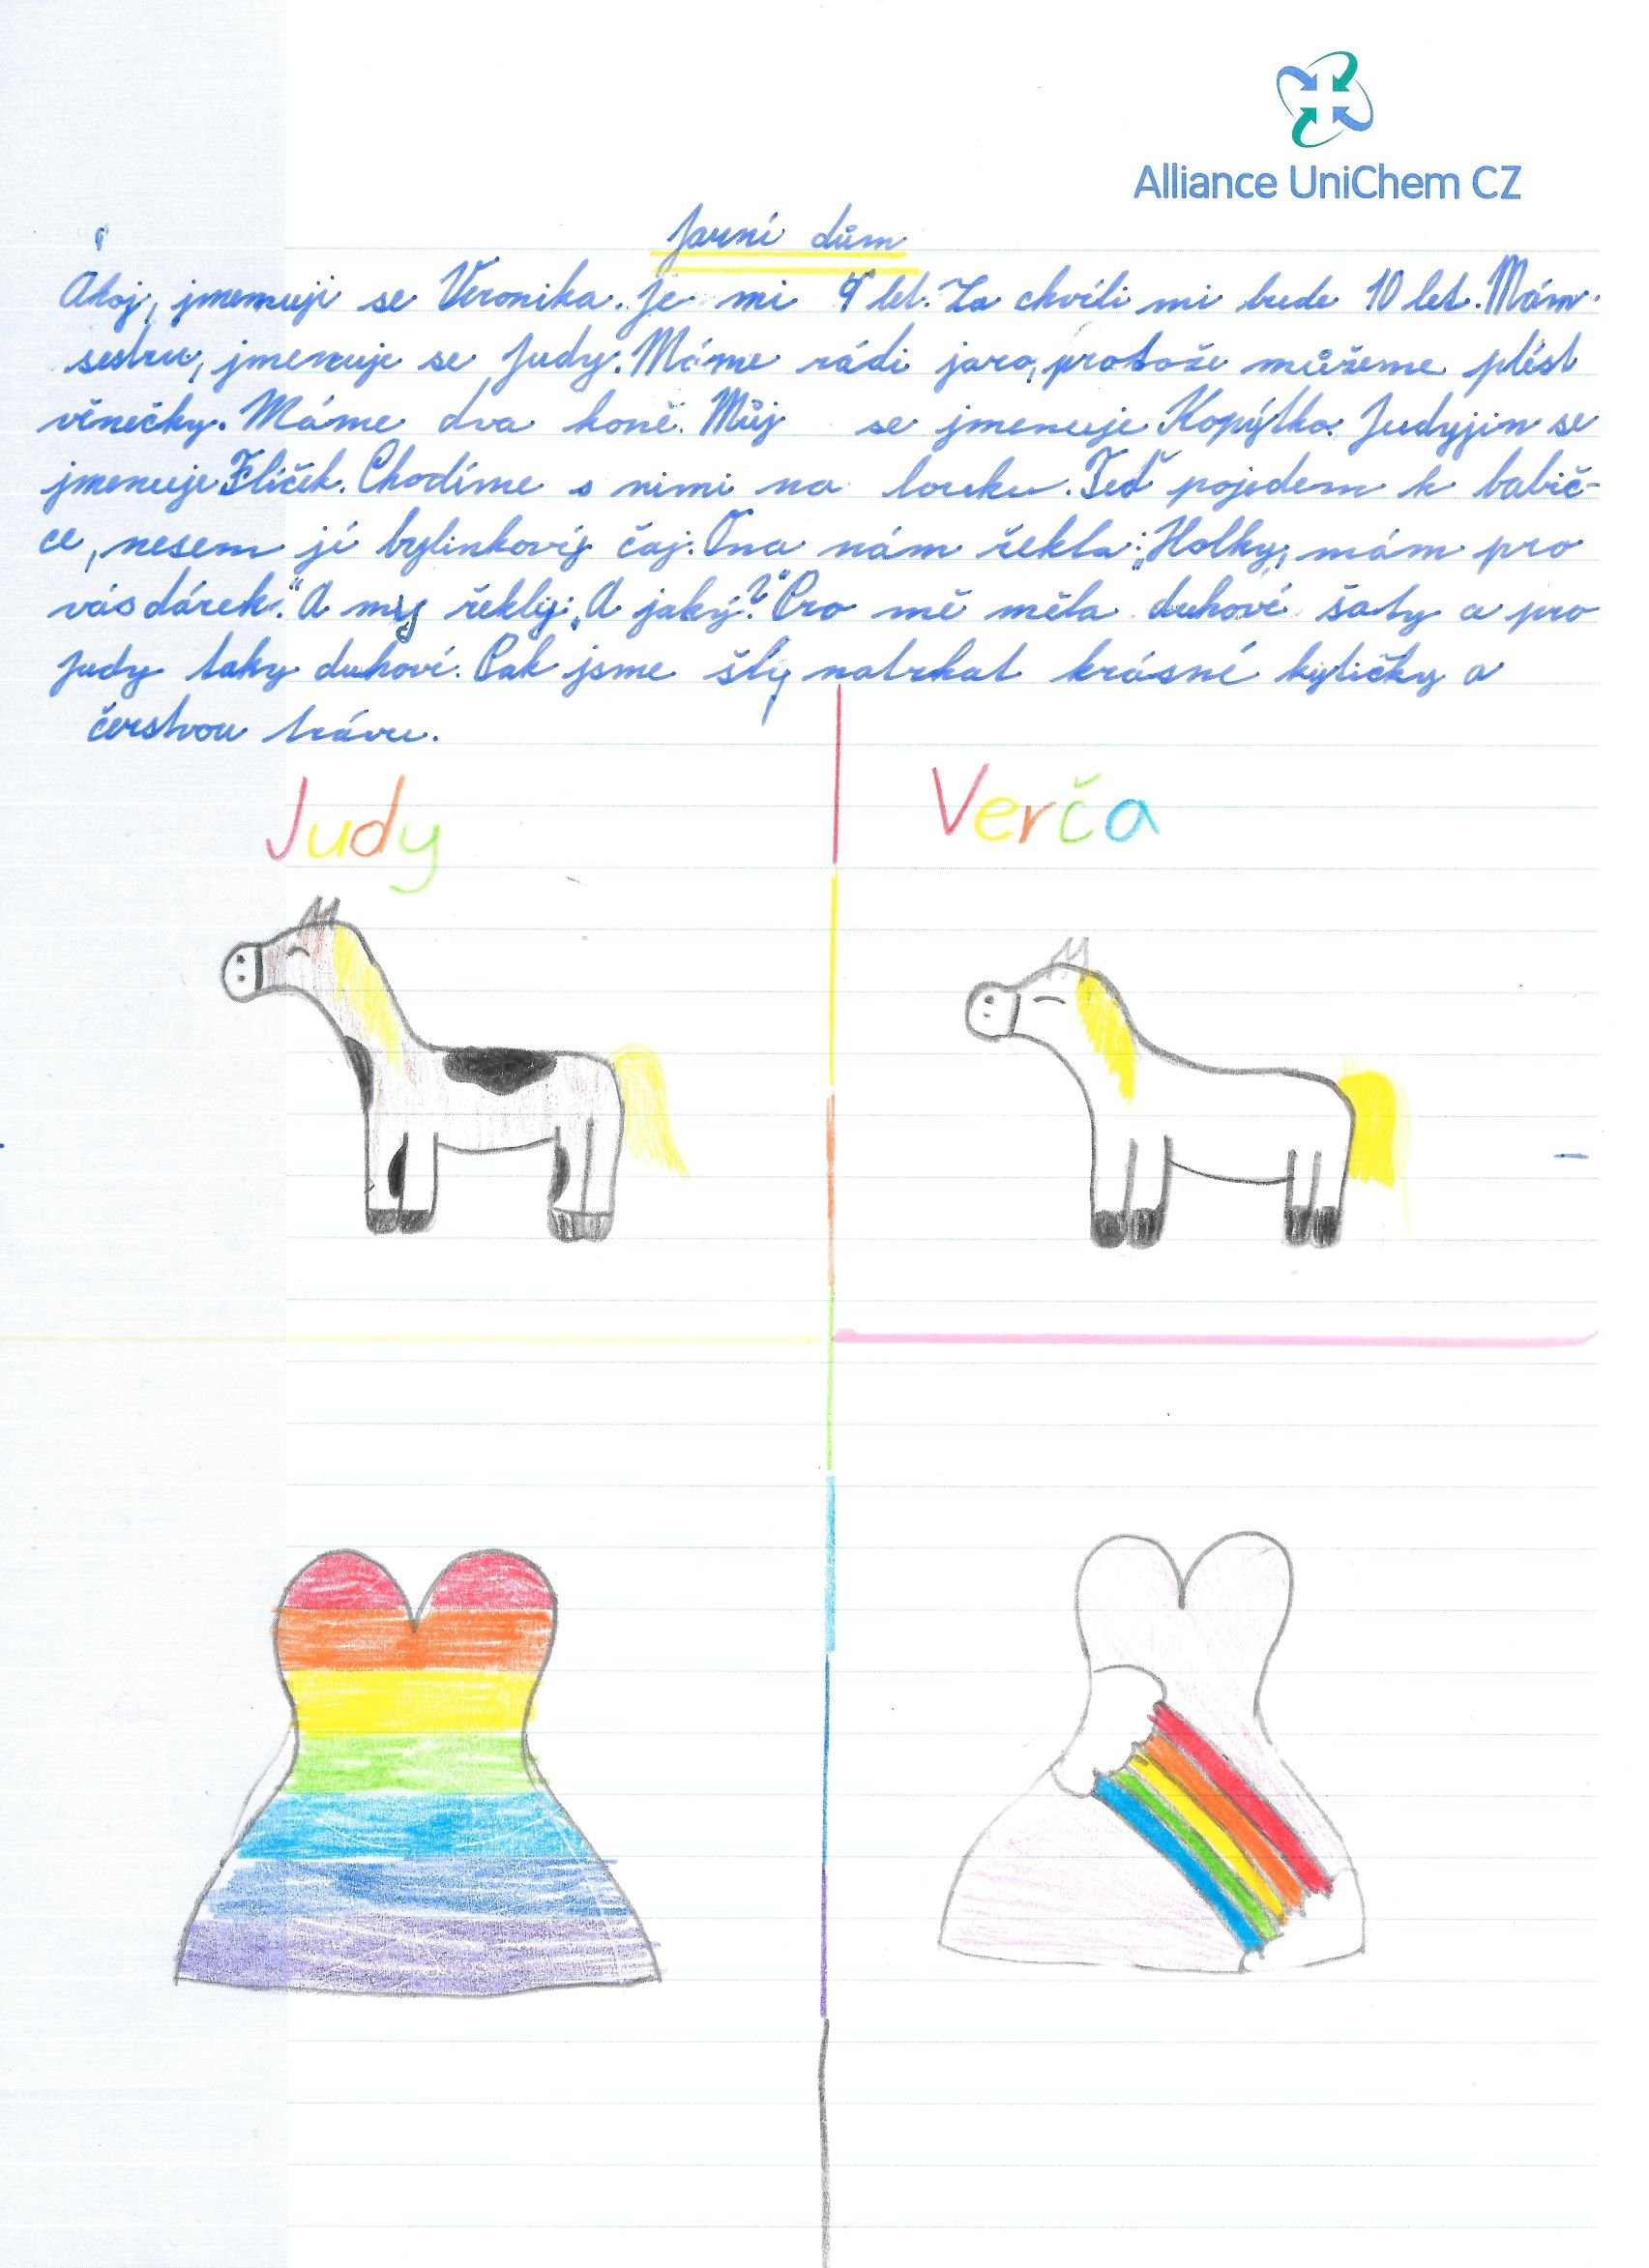 Alliance UniChem CZ
Jarní dům
Ahoj, jmenuji se Veronika. Je mi 9 let. Za chvíli mi bude 10 let. Mám
sestru, jmenuje se Judy. Máme rádi jaro, protože můžeme plést
věnečky. Máme dva koně. Můj se jmenuje Kopýtko. Judyjin se
jmenuje Flíček. Chodíme s nimi na louku. Teď pojedem k babič-
ce, nesem jí bylinkový čaj. Ona nám řekla: „Holky, mám pro
vás dárek.“ A my řekly: „A jaký?“ Pro mě měla duhové šaty a pro
Judy taky duhové. Pak jsme šly natrhat krásné kytičky a
čerstvou trávu.
Judy
Verča